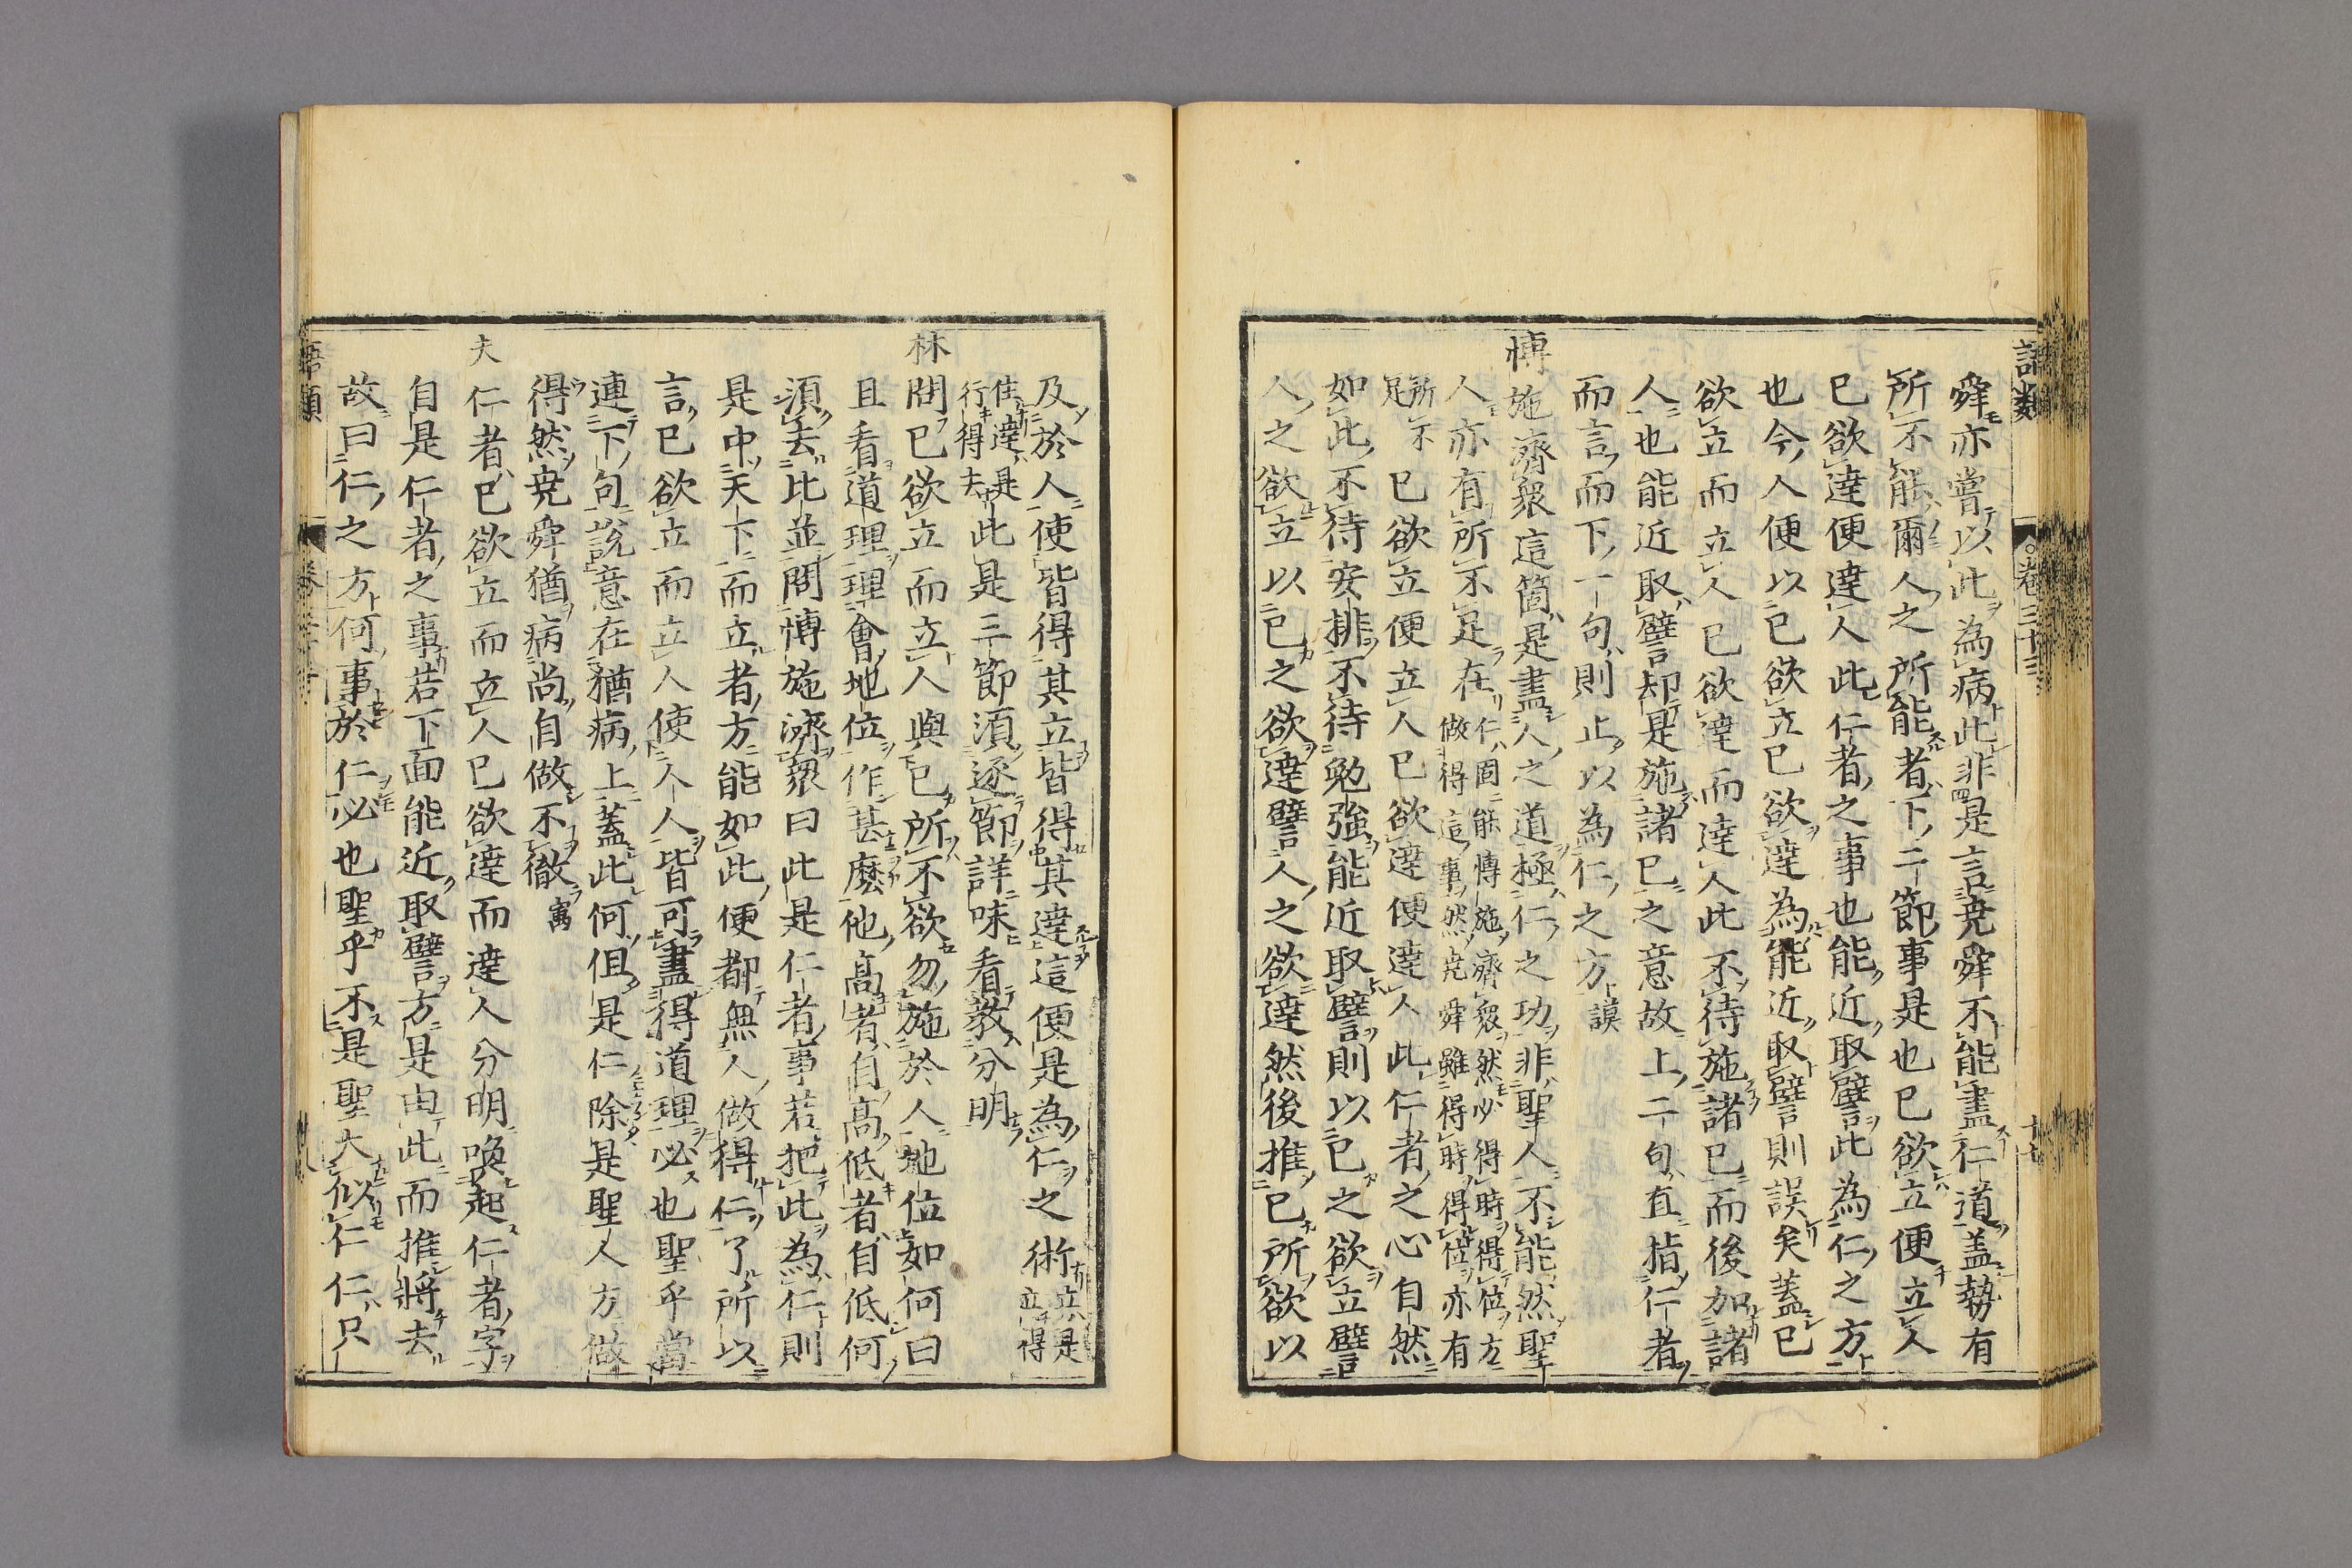 語類
卷三十三
十七
舜亦嘗以此為病此非是言堯舜不能盡仁道蓋勢有
所不能爾人之所能者下二節事是也己欲立便立人
己欲達便達人此仁者之事也能近取譬此為仁之方
也今人便以己欲立己欲達為能近取譬則誤矣蓋己
欲立而立人己欲達而達人此不待施諸己而後加諸
人也能近取譬却是施諸己之意故上二句直指仁者
而言而下一句則止以為仁之方謨
博施濟衆這箇是盡人之道極仁之功非聖人不能然聖
人亦有所不足在仁固能博施濟衆然必得時得位方
做得這事然堯舜雖得時得位亦有
所不
足己欲立便立人己欲達便達人此仁者之心自然
如此不待安排不待勉強能近取譬則以己之欲立譬
人之欲立以己之欲達譬人之欲達然後推己所欲以
及於人使皆得其立皆得其達這便是為仁之術立是
立得
住達是
行得去此是三節須逐節詳味看教分明
林問己欲立而立人與己所不欲勿施於人地位如何曰
且看道理理會地位作甚麼他高者自高低者自低何
須去比並問博施濟衆曰此是仁者事若把此為仁則
是中天下而立者方能如此便都無人做得仁了所以
言己欲立而立人使人人皆可盡得道理必也聖乎當
連下句說意在猶病上蓋此何但是仁除是聖人方做
得然堯舜猶病尚自做不徹㝢
夫仁者己欲立而立人己欲達而達人分明喚起仁者字
自是仁者之事若下面能近取譬方是由此而推將去
故曰仁之方何事於仁必也聖乎不是聖大似仁仁只
語類